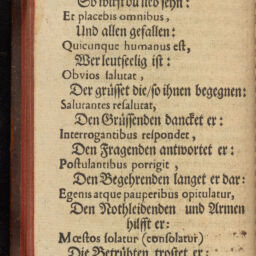 So wirst du lieb seyn:
Et placebis omnibus,
Und allen gefallen:
Quicunque humanus est,
Wer leutseelig ist:
Obvios salutat,
Der grüsset die/so ihnen begegnen:
Salutantes resalutat,
Den Grüssenden dancket er:
Interrogantibus respondet,
Den Fragenden antwortet er:
Postulantibus porrigit,
Den Begehrenden langet er dar:
Egenis atque pauperibus opitulatur,
Den Nothleidenden und Armen
hilfft er:
Mœstos solatur (consolatur)
Die Betrübten tröstet er: